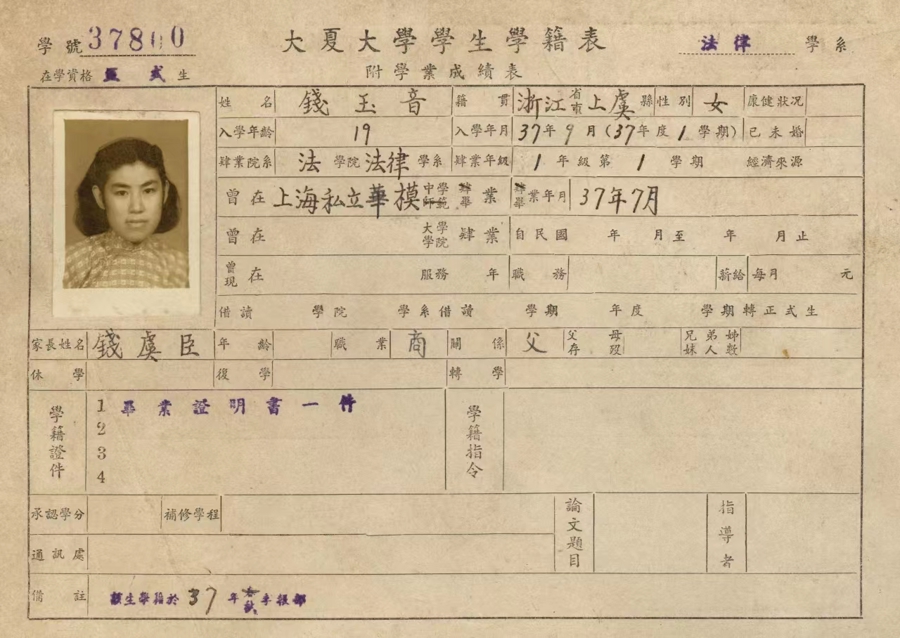 學號 37800 大夏大學學生學籍表 法律 學系
在學資格 正式 生 附學業成績表
姓名 錢玉音 籍貫 浙江 省市 上虞 縣 性別 女 康健狀況
入學年齡 19 入學年月 37年9月(37年度1學期) 已未婚
肄業院系 法 學院 法律 學系 肄業年級 1 年級第 1 學期 經濟來源
曾在 上海私立華模 中學 師範 肄畢業 肄畢業年月 37年7月
曾在 大學 學院 肄業 自民國 年 月至 年 月止
曾現在 服務 年 職務 薪給 每月 元
借讀 學院 學系借讀 學期 年度 學期轉正式生
家長姓名 錢虞臣 年齡 職業 商 關係 父 父存 母歿 兄弟姊妹人數
休學 復學 轉學
學籍證件 1 畢業證明書一件 學籍指令
2
3
4
承認學分 補修學程 論文題目 指導者
通訊處
備註 該生學籍於 37 年 秋 季報部